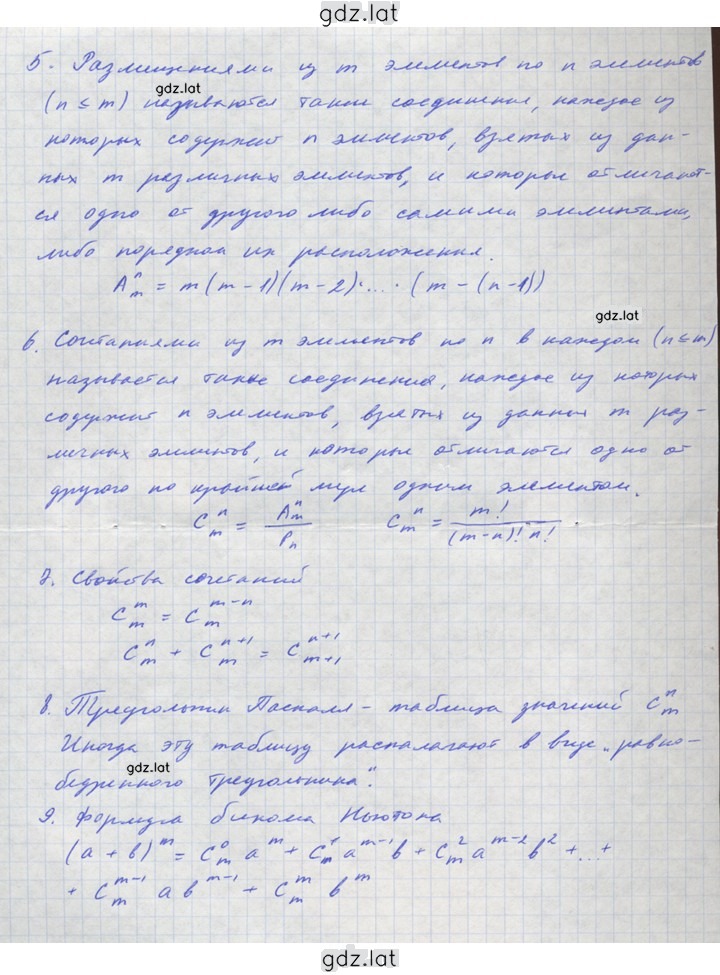 gdz.lat
5. Размещениями из m элементов по n элементов
(n ≤ m) называются такие соединения, каждое из
gdz.lat
которых содержит n элементов, взятых из дан-
ных m различных элементов, и которые отличают-
ся одно от другого либо самими элементами,
либо порядком их расположения.
A_m^n = m(m-1)(m-2)·...·(m-(n-1))
gdz.lat
6. Сочетаниями из m элементов по n в каждом (n ≤ m)
называется такие соединения, каждое из которых
содержит n элементов, взятых из данных m раз-
личных элементов, и которые отличаются одно от
другого по крайней мере одним элементом.
C_m^n = A_m^n / P_n    C_m^n = m! / (m-n)! n! .
gdz.lat
7. Свойства сочетаний
C_m^m = C_m^{m-n}
C_m^n + C_m^{n+1} = C_{m+1}^{n+1}
8. Треугольник Паскаля - таблица значений C_m^n
Иногда эту таблицу распалагают в виде „равно-
gdz.lat
бедренного треугольника".
9. Формула бинома Ньютона
(a + b)^m = C_m^0 a^m + C_m^1 a^{m-1} b + C_m^2 a^{m-2} b^2 + ... +
+ C_m^{m-1} a b^{m-1} + C_m^m b^m
gdz.lat